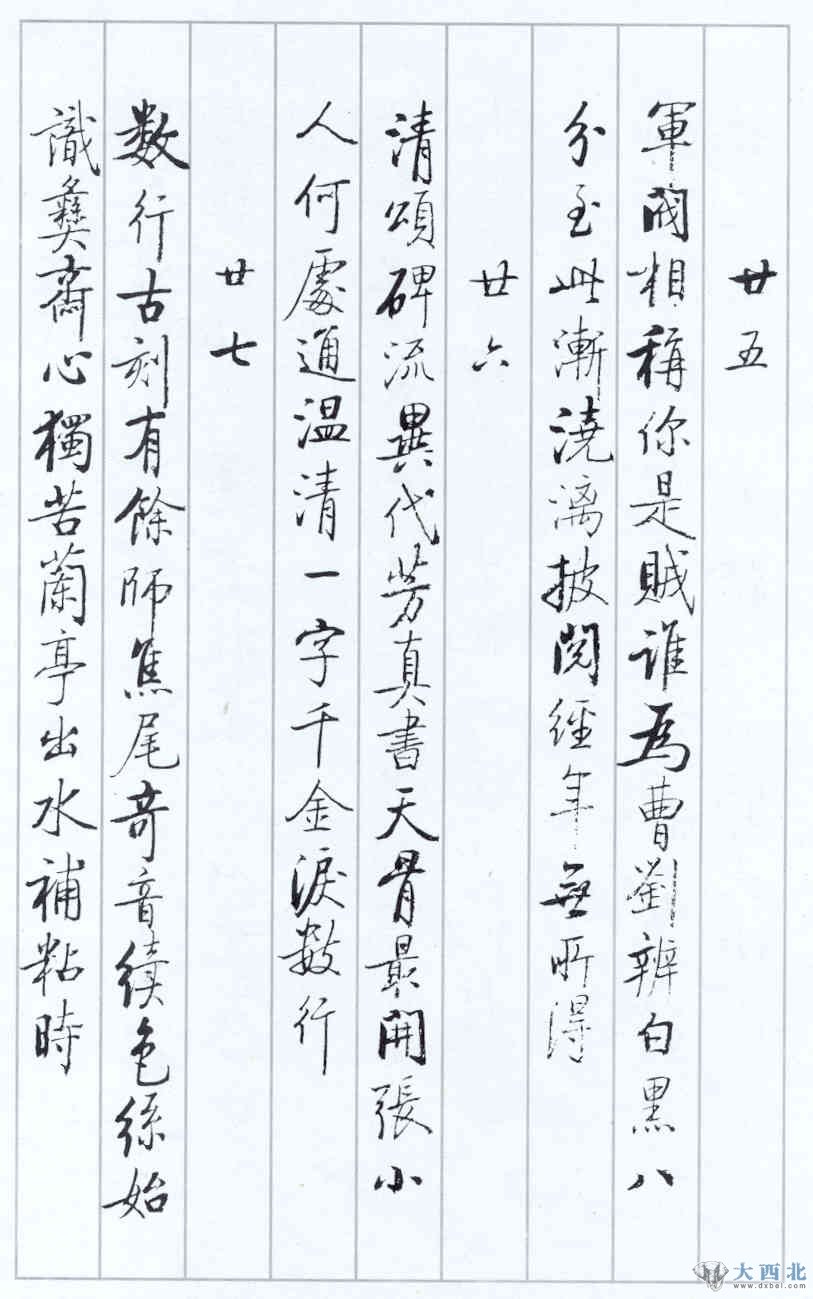 廿五
軍閥相稱你是賊誰為曹劉辨白黑八
分至此漸澆漓披閱經年無所得
廿六
清頌碑流異代芳真書天骨最開張小
人何處通温清一字千金淚數行
廿七
数行古刻有餘師焦尾奇音續色絲始
識彝齋心獨苦蘭亭出水補粘時
大西北
www.dxbei.com